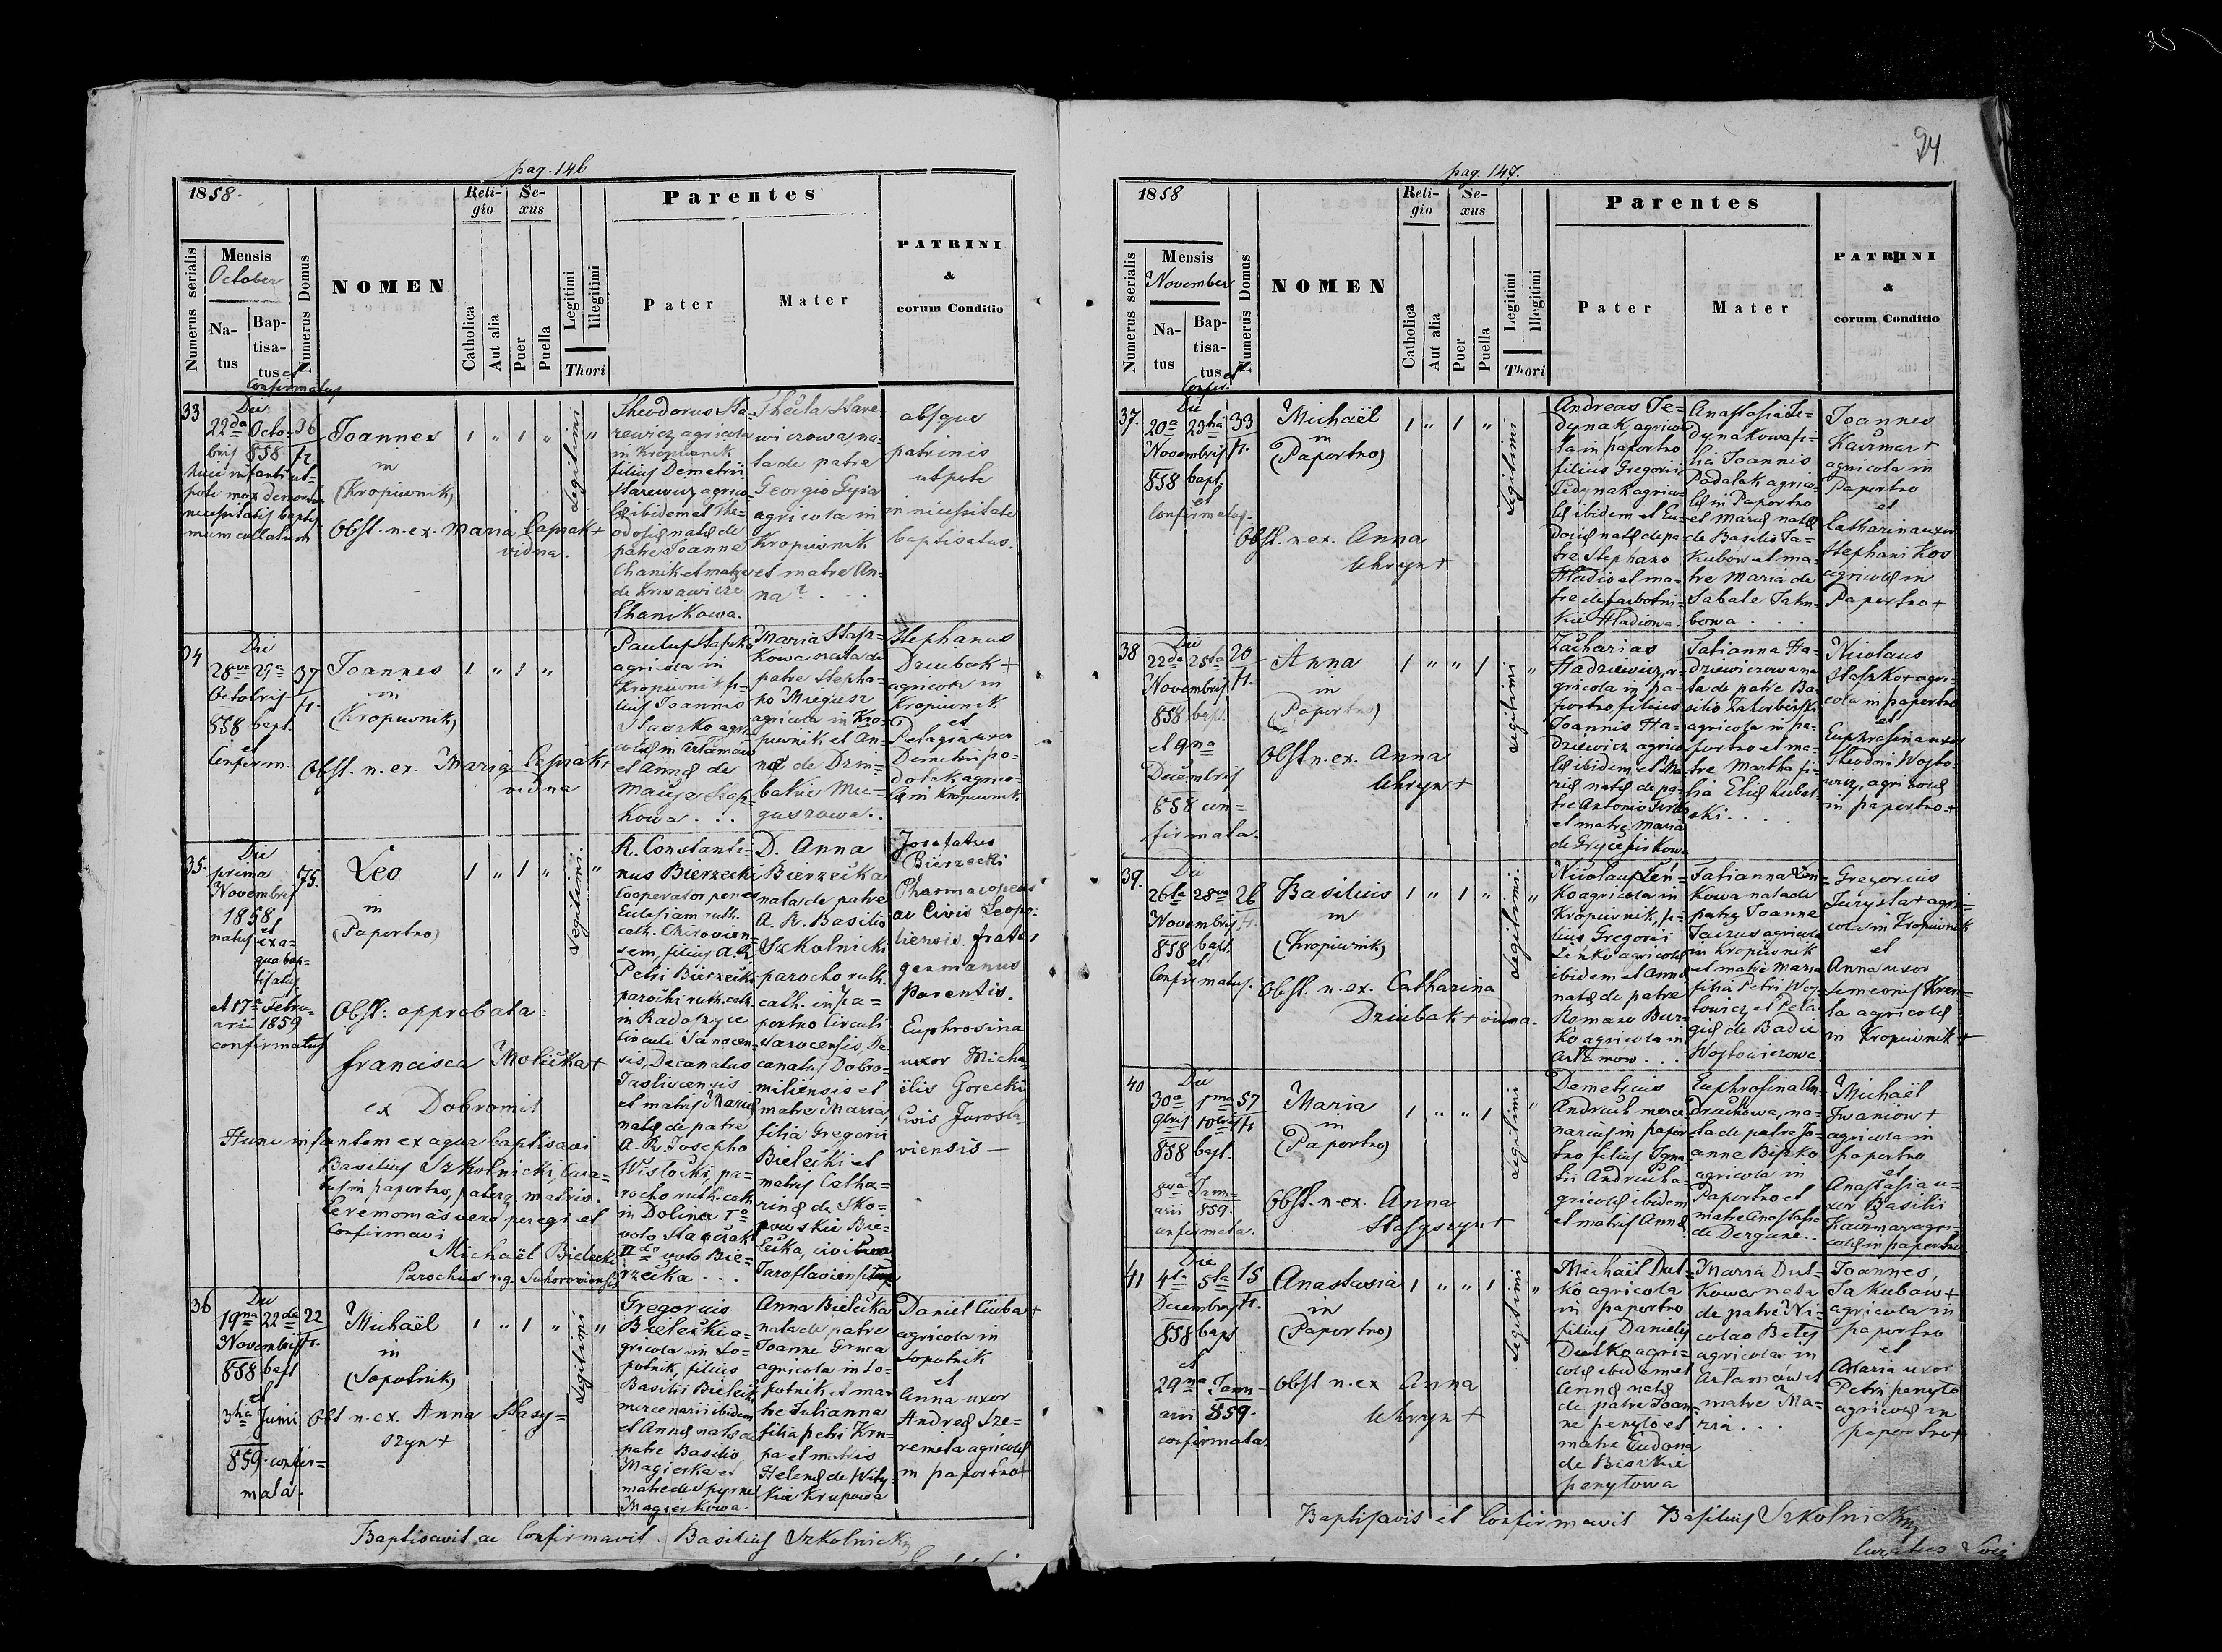 pag. 146
1858.
Numerus serialis
Mensis
October
Natus
Baptisatus et
Confirmatus
Numerus Domus
NOMEN
Religio
Catholica
Aut alia
Sexus
Puer
Puella
Legitimi
Illegitimi
Thori
Parentes
Pater
Mater
PATRINI
&
eorum Conditio
33
Die
22da Octo=
bris 858
36
Joannes
in
(Kropiwnik)
1 „ 1 „
Legitimi
„
huic infanti ut=
pote mox
necessitatis baptis
mum collatum
Obst. n. ex. Maria Capiak +
vidna.
Theodorus Ha=
rewicz agricola
in Kropiwnik
filius Demetrii
Harewicz agrico=
lae ibidem et The=
odosiae natae de
patre Joanne
Chanik et matre
de
Chanikowa.
Thecla Hare
wiczowa, na=
ta de patre
Georgio
agricola in
Kropiwnik
et matre An=
na? . . .
absque
patrinis
utpote
in necessitate
baptisatus.
34
Die
28va 29a
Octobris
858 bapt.
Confirm.
37
Joannes
in
(Kropiwnik)
1 „ 1 „
Obst. n. ex. Maria Capiak
vidna
Paulus
agricola in
Kropiwnik fi=
lius Joannis
agri
colae in Artamow
et Annae de
kowa . . .
Maria
kowa nata de
patre Stepha=
no Miegusz
agricola in Kro=
piwnik et An=
nae de Dziu=
bakie Mie=
guszowa . .
Stephanus
Dziubak +
agricola in
Kropiwnik
et
Pelagia uxor
Demetrii Po=
dolek agrico=
lae in Kropiwnik
35.
Die
prima
Novembris
1858
natus et exa=
qua bap=
tisatus.
et 17a Febru=
arii 1859
confirmatus
75.
Leo
in
(Paportno)
1 „ 1 „
Legitimi.
„
Obst: approbata:
Francisca Molicka +
ex Dobromil
Hunc infantem ex aqua baptisavi
Basilius Szkolnicki, Cura=
tus in Paportno, pater matris.
Ceremonias vero peregi et
Confirmavi
Michaël Bielecki
Parochus r.g.
R. Constanti=
nus Bierzecki
Cooperator penes
Eclesiam ruth.
cath. Chirovien=
sem, filius A. R.
Petri Bierzecki
parochi ruth. cath.
in Radoszyce
Circuli Sanocen
sis, Decanatus
Jasliscensis
et matris Mariae
natae de patre
A. R. Josepho
Wislocki, pa=
rocho ruth. cath.
in Dolina 1o
voto
IIdo voto Bie=
rzecka . . .
D. Anna
Bierzecka
nata de patre
A. R. Basilio
Szkolnicki
parocho ruth.
cath. in Pa=
portno Circuli
Sanocensis, De=
canatus Dobro=
miliensis et
matre Maria,
filia Gregorii
Bielecki et
matris Catha=
rinae de
Bie=
lecka,
Josafatus
Bierzecki
Pharmacopeus
ac Civis Leopo=
liensis frater
germanus
Parentis.
Euphrosina
uxor Micha
ëlis Gorecki
Civis Jarosla
viensis —
36
Die
19na 22da
Novembris
858 bapt
et
3tia Junii
859 confir=
mata.
22
Michaël
in
(Sopotnik)
1 „ 1 „
Legitimi
„
Obst n. ex. Anna Stasy=
szyn +
Gregorius
Bielecki a=
gricola in So=
potnik, filius
Basilii Bielecki
mercenarii ibidem
et Annae natae de
patre Basilio
Magierka et
matre de
Magierkowa.
Anna Bielecka
nata de patre
Joanne
agricola in So=
potnik et ma=
tre Julianna
filia Petri Kru=
pa et matris
Helenae de
Krupowa
Daniel Ciuba +
agricola in
Sopotnik
et
Anna uxor
Andreae Sze=
remeta agricolae
in Paportno +
Baptisavit ac Confirmavit Basilius Szkolnicki
24
pag. 147.
1858
Numerus serialis
Mensis
November
Natus
Baptisatus et
Confir.
Numerus Domus
NOMEN
Religio
Catholica
Aut alia
Sexus
Puer
Puella
Legitimi
Illegitimi
Thori
Parentes
Pater
Mater
PATRINI
&
eorum Conditio
37.
Die
20a 23tia
Novembris
858 bapt.
et
Confirmatus.
33
Michaël
in
(Paportno)
1 „ 1 „
Legitimi
Obst. n. ex. Anna
Uhryn +
Andreas Fe=
dynak agrico
la in Paportno
filius Gregorii
Fedynak agrico=
lae ibidem et Eu=
dociae natae de pa
tre Stephano
Hladio et ma=
tre de
Hladiowa.
Anastasia Fe=
dynakowa fi=
lia Joannis
Podalak agrico=
lae in Paportno
et Mariae natae
de Basilio Ja=
kubow et ma=
tre Maria de
Sabale Jaku=
bowa . . .
Joannes
Kaczmar +
agricola in
Paportno
et
Catharina uxor
Stephani Kos
agricolae in
Paportno +
38
Die
22da 25ta
Novembris
858 bapt.
et 9na
Decembris
858 con=
firmata.
20
Anna
in
(Paportno)
1 „ „ 1
Legitimi
„
Obst n. ex. Anna
Uhryn +
Zacharias
Hadziewicz a=
gricola in Pa=
portno filius
Joannis Ha=
dziewicz agrico
lae ibidem et Ma=
riae natae de pa=
tre Antonio
et matre Maria
de
Tatianna Ha=
dziewiczowa na
ta de patre Ba=
silio
agricola in Pa=
portno et ma=
tre Martha fi=
lia Eliae
. . . .
Nicolaus
Staszko + agri=
cola in Paportno
et
Euphrosina uxor
Theodori Wojto=
wicz, agricolae
in Paportno +
39.
Die
26ta 28va
Novembris
858 bapt.
et
Confirmatus.
26
Basilius
in
(Kropiwnik)
1 „ 1 „
Legitimi.
„
Obst. n. ex. Catharina
Dziubak + vidna.
Nicolaus Leń=
ko agricola in
Kropiwnik, fi=
lius Gregorii
Leńko agricolae
ibidem et Annae
natae de patre
Romano Bur=
ko agricola in
Artamow . . .
Tatianna Len=
kowa nata de
patre Joanne
agricola
in Kropiwnik
et matre Maria
filia Petri Woj=
towicz et Pela=
giae de
Wojtowiczowa.
Gregorius
Jurysta + agri=
cola in Kropiwnik
et
Anna uxor
Simeonis
agricolae
in Kropiwnik +
40
Die
30a 1ma
9bris 10bris
858 bapt.
8va Janu=
arii 859.
confirmata.
57
Maria
in
(Paportno)
1 „ „ 1
Legitimi
„
Obst. n. ex. Anna
Stasyszyn +
Demetrius
Andruch merce
narius in Papor=
tno filius Igna=
tii Andruch a=
gricolae ibidem
et matris Annae
Euphrosina An=
druchowa, na=
ta de patre Jo=
anne Biszko
agricola in
Paportno et
matre Anastasia
de Dergane . .
Michaël
Iwaniow +
agricola in
Paportno
et
Anastasia u=
xor Basilii
Kaczmar agri=
colae in Paportno
41
Die
4ta 5ta
Decembris
858 bapt
et
29na Janu=
arii 859.
confirmata.
15
Anastasia
in
(Paportno)
1 „ „ 1
Legitimi
„
Obst n. ex Anna
Uhryn +
Michaël Dul=
ko agricola
in Paportno
filius Danielis
Dulko agri=
colae ibidem et
Annae natae
de patre Joan=
ne Penylo et
matre Eudoxia
de
Penylowa
Maria Dul=
kowa nata
de patre Ni=
colao
agricola in
Artamow et
matre Ma=
ria . . .
Joannes,
Jakubow +
agricola in
Paportno
et
Maria uxor
Petri Penylo
agricolae in
Paportno +
Baptisavit et Confirmavit Basilius Szkolnicki
Curatus Loci